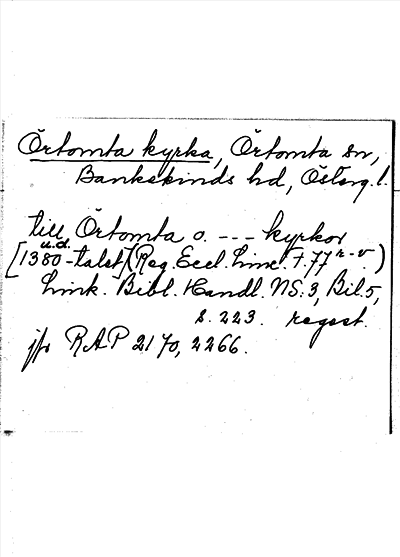 Örtomta kyrka, Örtomta sn,
Bankekinds hd, Österg. l.
till Örtomta o. --- kyrkor
u.d.
[1380-talet] (Reg. Eccl. Linc. f. 77 r-v)
Link. Bibl. Handl. NS. 3, Bil. 5,
s. 223. regest.
jfr RAP 2170, 2266.